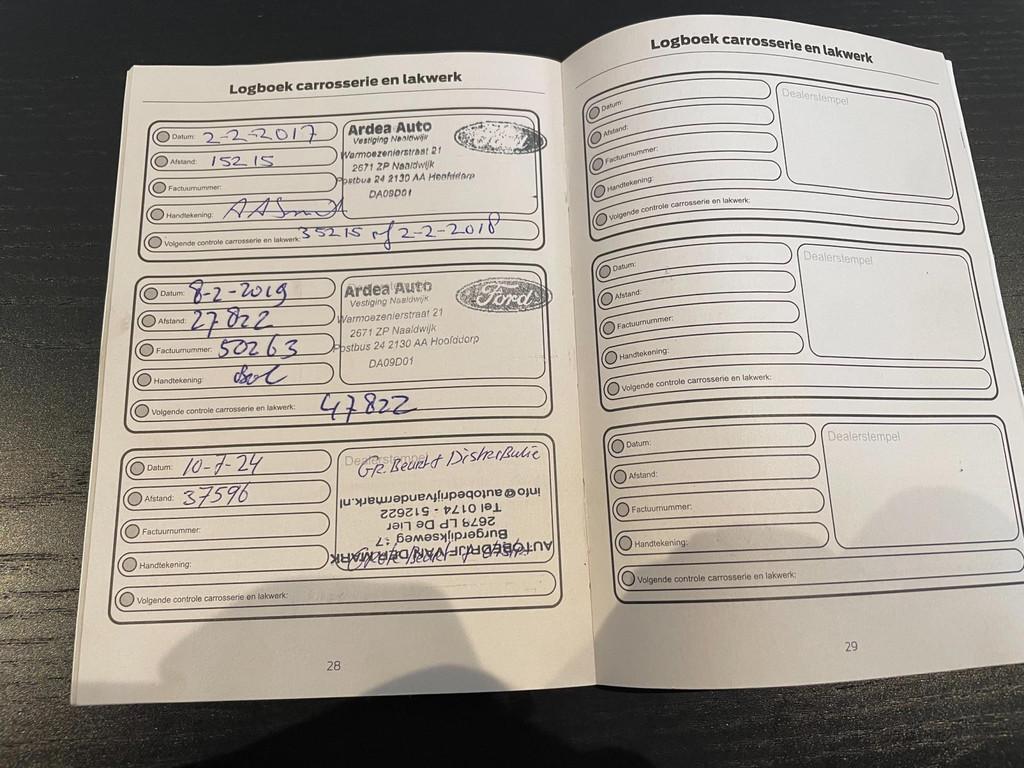 Logboek carrosserie en lakwerk
Datum: 2-2-2017
Afstand: 15215
Factuurnummer:
Handtekening: AASmit
Volgende controle carrosserie en lakwerk: 35215 of 2-2-2018
Ardea Auto
Vestiging Naaldwijk
Warmoezenierstraat 21
2671 ZP Naaldwijk
Postbus 24 2130 AA Hoofddorp
DA09D01
Datum: 8-2-2019
Afstand: 27822
Factuurnummer: 50263
Handtekening:
Volgende controle carrosserie en lakwerk: 47822
Ardea Auto
Vestiging Naaldwijk
Warmoezenierstraat 21
2671 ZP Naaldwijk
Postbus 24 2130 AA Hoofddorp
DA09D01
Ford
Datum: 10-7-24
Afstand: 37596
Factuurnummer:
Handtekening:
Volgende controle carrosserie en lakwerk:
Dealerstempel
Gr. Beurt + Distributie
AUTOBEDRIJF VAN DER MARK
Burgerdijkseweg
2678 LP De Lier
Tel 0174 - 512622
info@autobedrijfvandermark.nl
28
Logboek carrosserie en lakwerk
Datum:
Afstand:
Factuurnummer:
Handtekening:
Volgende controle carrosserie en lakwerk:
Dealerstempel
Datum:
Afstand:
Factuurnummer:
Handtekening:
Volgende controle carrosserie en lakwerk:
Dealerstempel
Datum:
Afstand:
Factuurnummer:
Handtekening:
Volgende controle carrosserie en lakwerk:
Dealerstempel
29